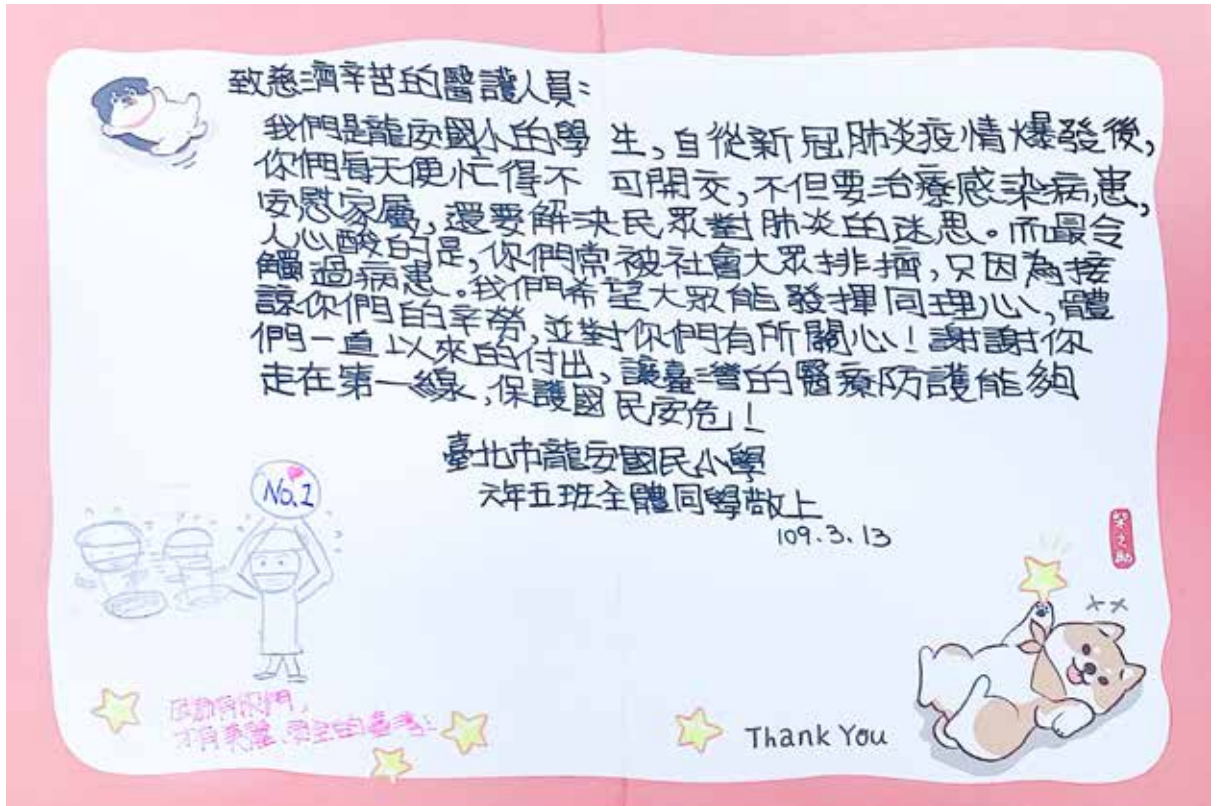 致慈濟辛苦的醫護人員:
我們是龍安國小的學生,自從新冠肺炎疫情爆發後,
你們每天便忙得不可開交,不但要治療感染病患,
安慰家屬,還要解決民眾對肺炎的迷思。而最令
人心酸的是,你們常被社會大眾排擠,只因為接
觸過病患。我們希望大眾能發揮同理心,體
諒你們的辛勞,並對你們有所關心!謝謝你
們一直以來的付出,讓臺灣的醫療防護能夠
走在第一線,保護國民安危!
臺北市龍安國民小學
六年五班全體同學敬上
109.3.13
No.1
柴之助
因為有你們,
才有美麗、安全的臺灣!
Thank You